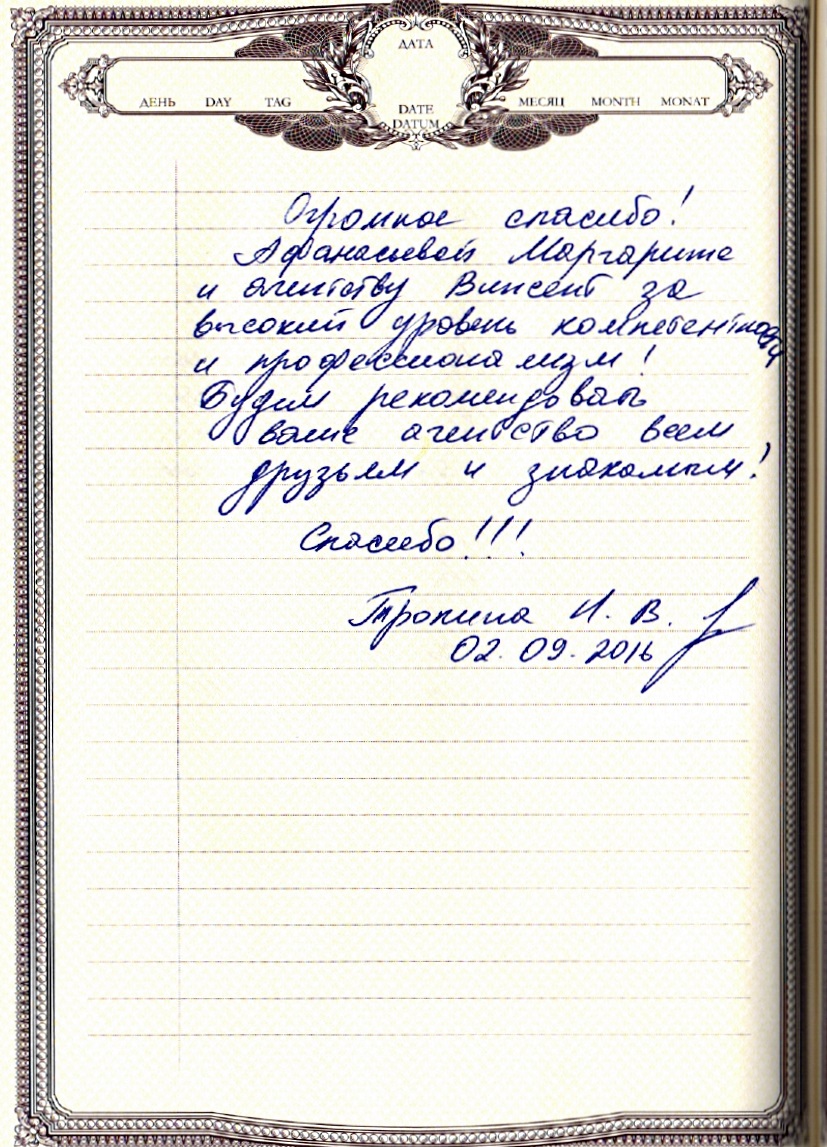 ДАТА
ДЕНЬ DAY TAG
МЕСЯЦ MONTH MONAT
DATE
DATUM
Огромное спасибо!
Афанасьевой Маргарите
и агентству Винсент за
высокий уровень компетентности
и профессионализм!
Будим рекомендовать
ваше агентство всем
друзьям и знакомым!
Спасибо!!!
Тропина И. В.
02.09.2016